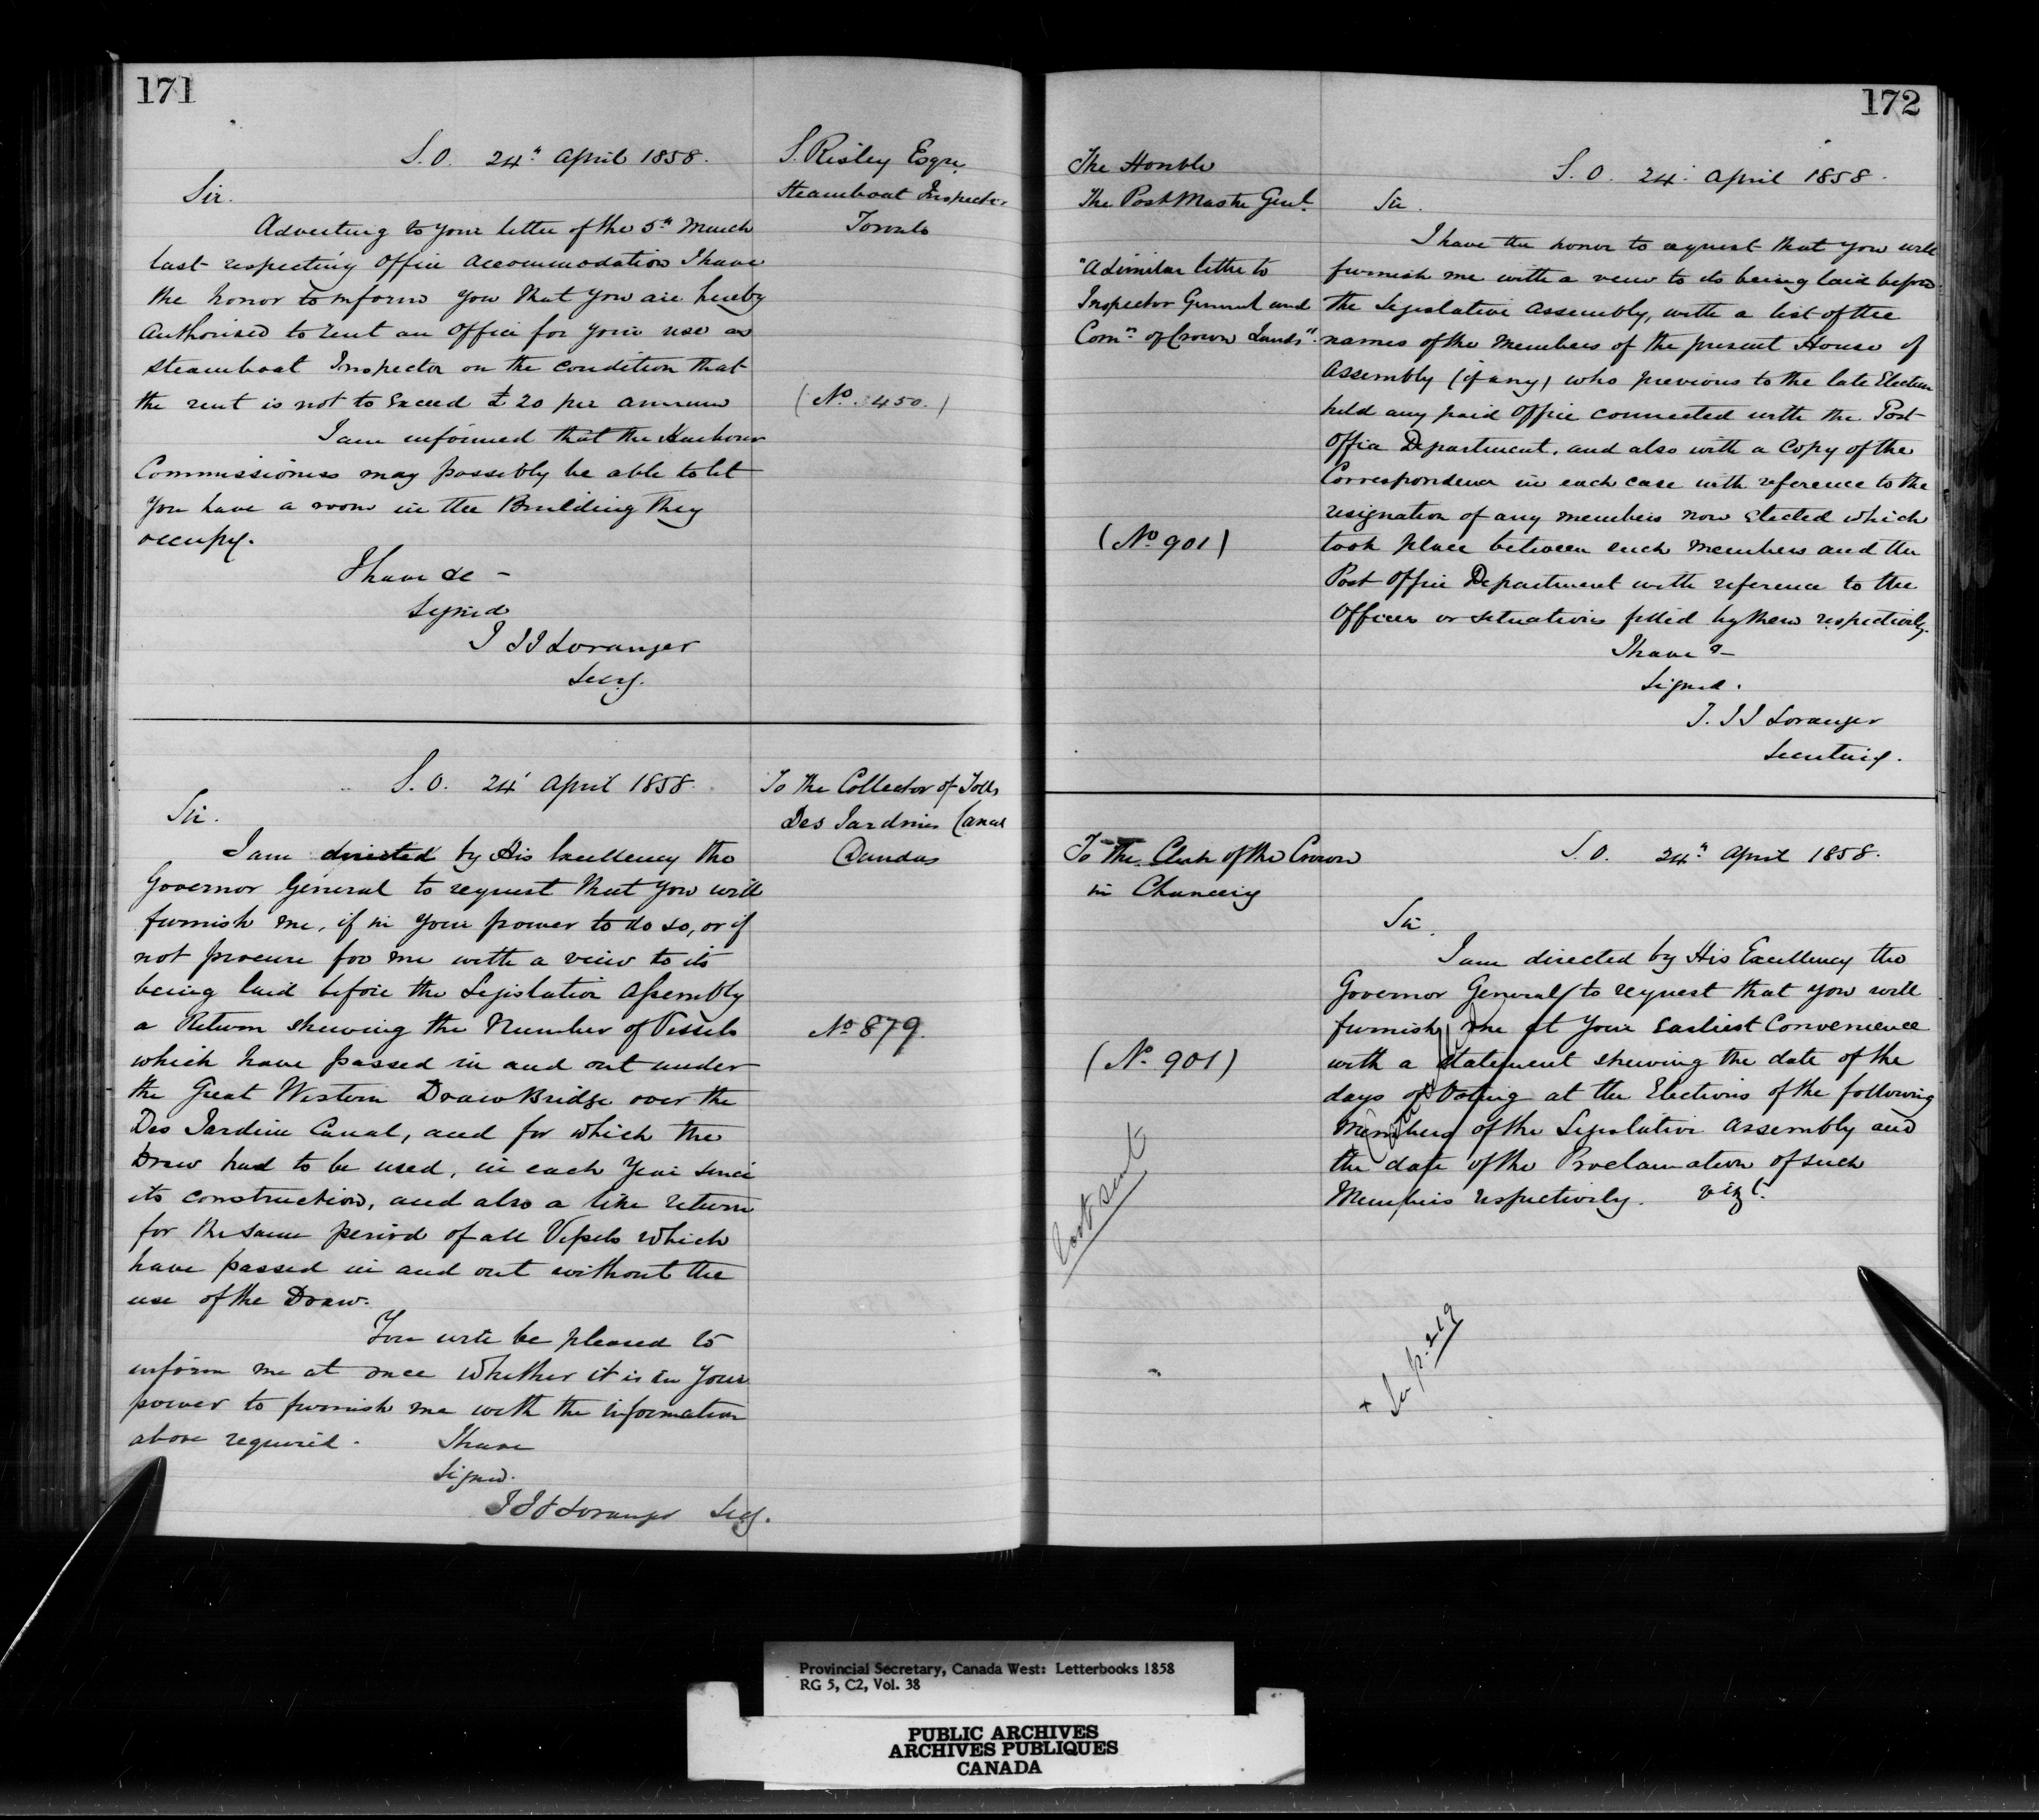 171
S. O. 24" April 1858.
S. Risley Esqre.
Steamboat Inspector
Toronto
Sir.
Adverting to your letter of the 5th March
last respecting Office Accommodation I have
the honor to inform you that you are hereby
Authorised to rent an Office for your use as
Steamboat Inspector on the condition that
the rent is not to Exceed £20 per annum
(No. 450.)
I am informed that the Harbour
Commissioners may possibly be able to let
you have a room in the Building they
occupy.
I have &c -
Signed
T J J Loranger
Secy.
S. O. 24' April 1858.
To the Collector of Tolls
Des Jardines Canal
Dundas
Sir.
I am directed by His Excellency the
Governor General to request that you will
furnish me, if in your power to do so, or if
not procure for me with a view to its
being laid before the Legislative Assembly
a Return shewing the Number of Vessels
No 879.
which have passed in and out under
the Great Western Draw Bridge over the
Des Jardine Canal, and for which the
Draw had to be used, in each year since
its construction, and also a like return
for the same period of all Vessels which
have passed in and out without the
use of the Draw.
You will be pleased to
inform me at once whether it is in your
power to furnish me with the information
above required.
I have
Signed.
T J J Loranger Secy.
172
The Honble
The Post Master Genl.
S. O. 24. April 1858.
Sir.
"A similar letter to
Inspector General and
Comr. of Crown Lands".
I have the honor to request that you will
furnish me with a view to its being laid before
the Legislative Assembly, with a list of the
names of the Members of the present House of
Assembly (if any) who previous to the late Election
held any paid Office connected with the Post
Office Department, and also with a Copy of the
Correspondence in each case with reference to the
resignation of any members now Elected which
(No 901)
took place between such Members and the
Post Office Department with reference to the
Offices or situations filled by them respectively.
I have &-
Signed.
T. J J Loranger
Secretary.
To the Clerk of the Crown
in Chancery
S. O. 24" April 1858.
Sir.
I am directed by His Excellency the
Governor General to request that you will
furnish me at your Earliest Convenience
(No. 901)
with a statement shewing the date of the
days of Voting at the Elections of the following
Members of the Legislative Assembly and
the date of the Proclamation of such
Members respectively. vizt.
not sent
+ See p. 219
Provincial Secretary, Canada West: Letterbooks 1858
RG 5, C2, Vol. 38
PUBLIC ARCHIVES
ARCHIVES PUBLIQUES
CANADA